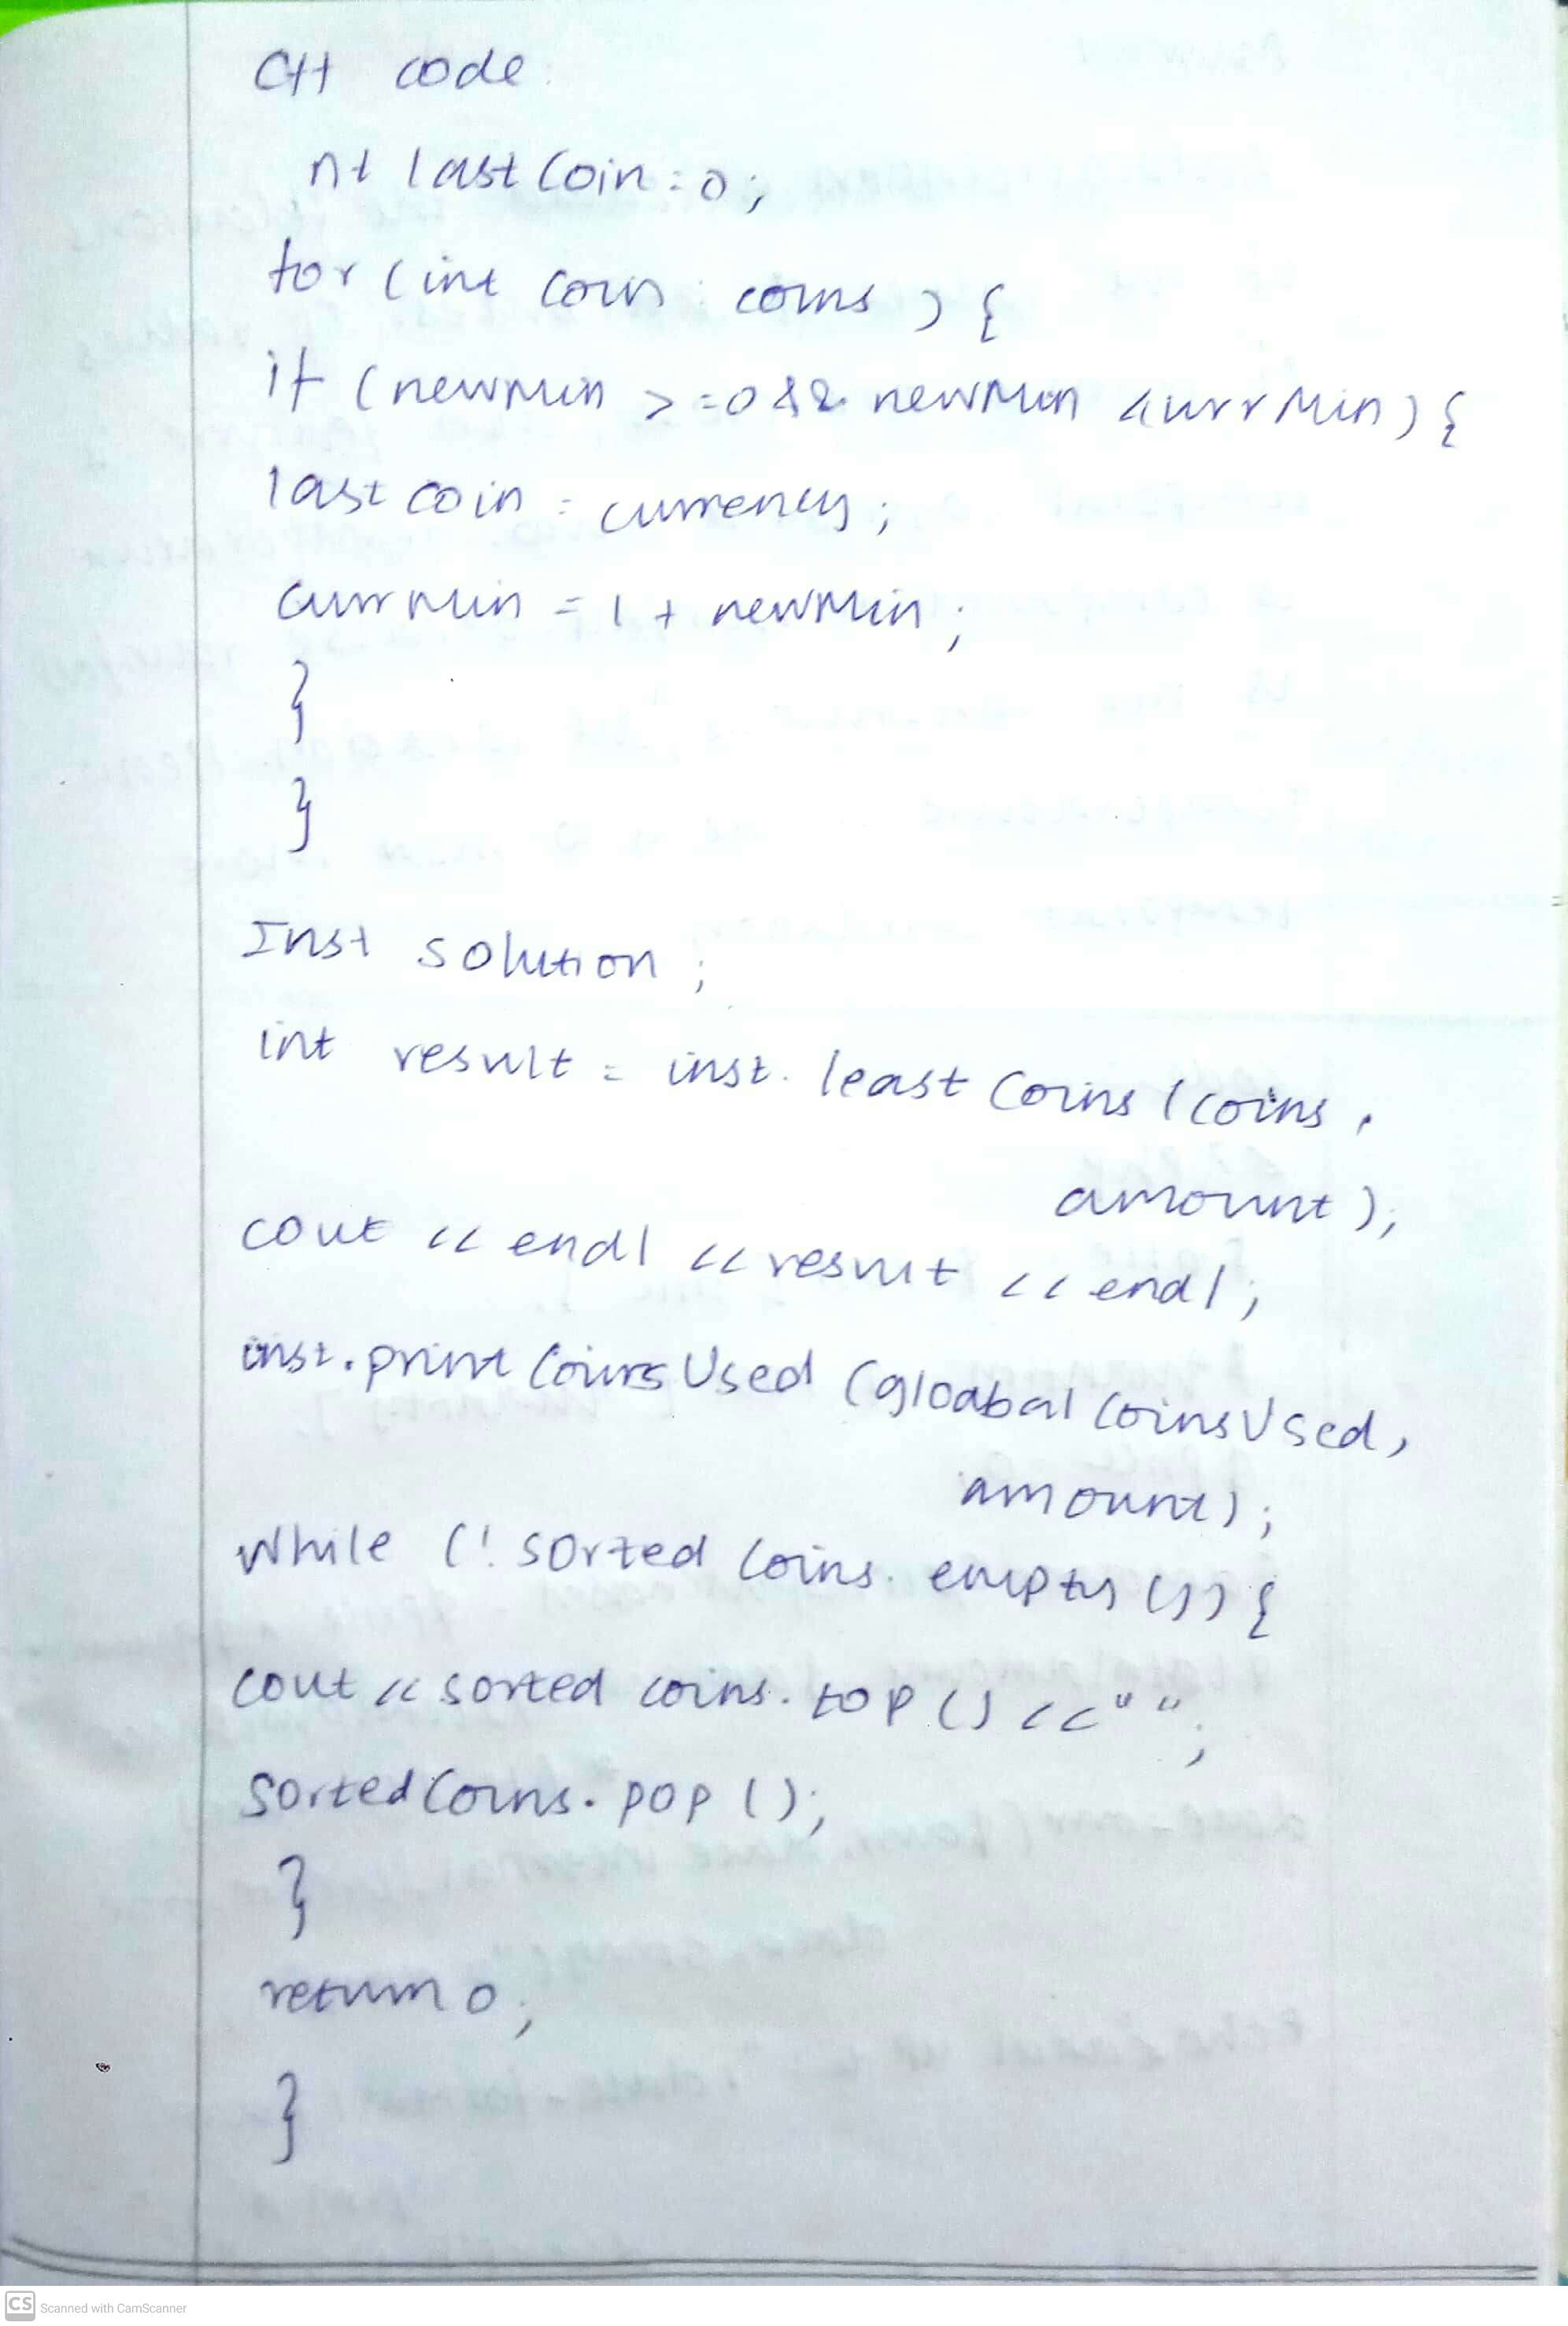 C++ code:
nt lastCoin = 0;
for (int coin : coins) {
if (newMin >= 0 && newMin < currMin) {
last coin = currency;
currMin = 1 + newMin;
}
}
Inst solution;
int result = inst. least Coins (coins,
amount);
cout << endl << result << endl;
inst. print Coins Used (gloabal CoinsUsed,
amount);
while (! sorted Coins. empty ()) {
cout << sorted coins. top () << " ";
Sorted Coins. pop ();
}
return 0;
}
CS Scanned with CamScanner